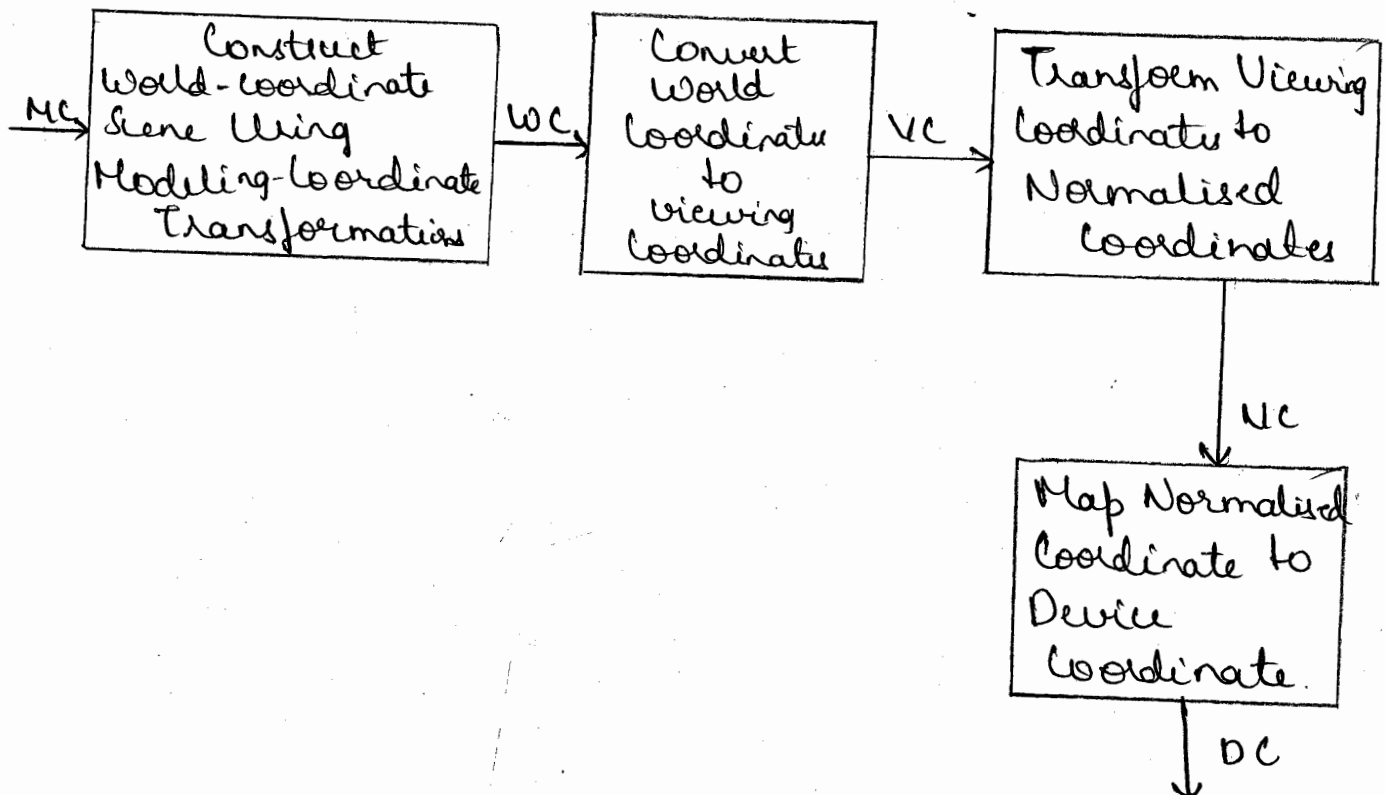 MC
Construct
World-Coordinate
Scene Using
Modeling-Coordinate
Transformations
WC
Convert
World
Coordinate
to
viewing
Coordinates
VC
Transform Viewing
Coordinates to
Normalised
Coordinates
NC
Map Normalised
Coordinate to
Device
Coordinate.
DC